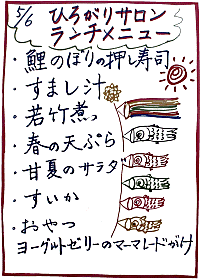 5/6 ひろがりサロン
ランチメニュー
・鯉のぼりの押し寿司
・すまし汁
・若竹煮っ
・春の天ぷら
・甘夏のサラダ
・すいか
・おやつ
ヨーグルトゼリーのマーマレードがけ